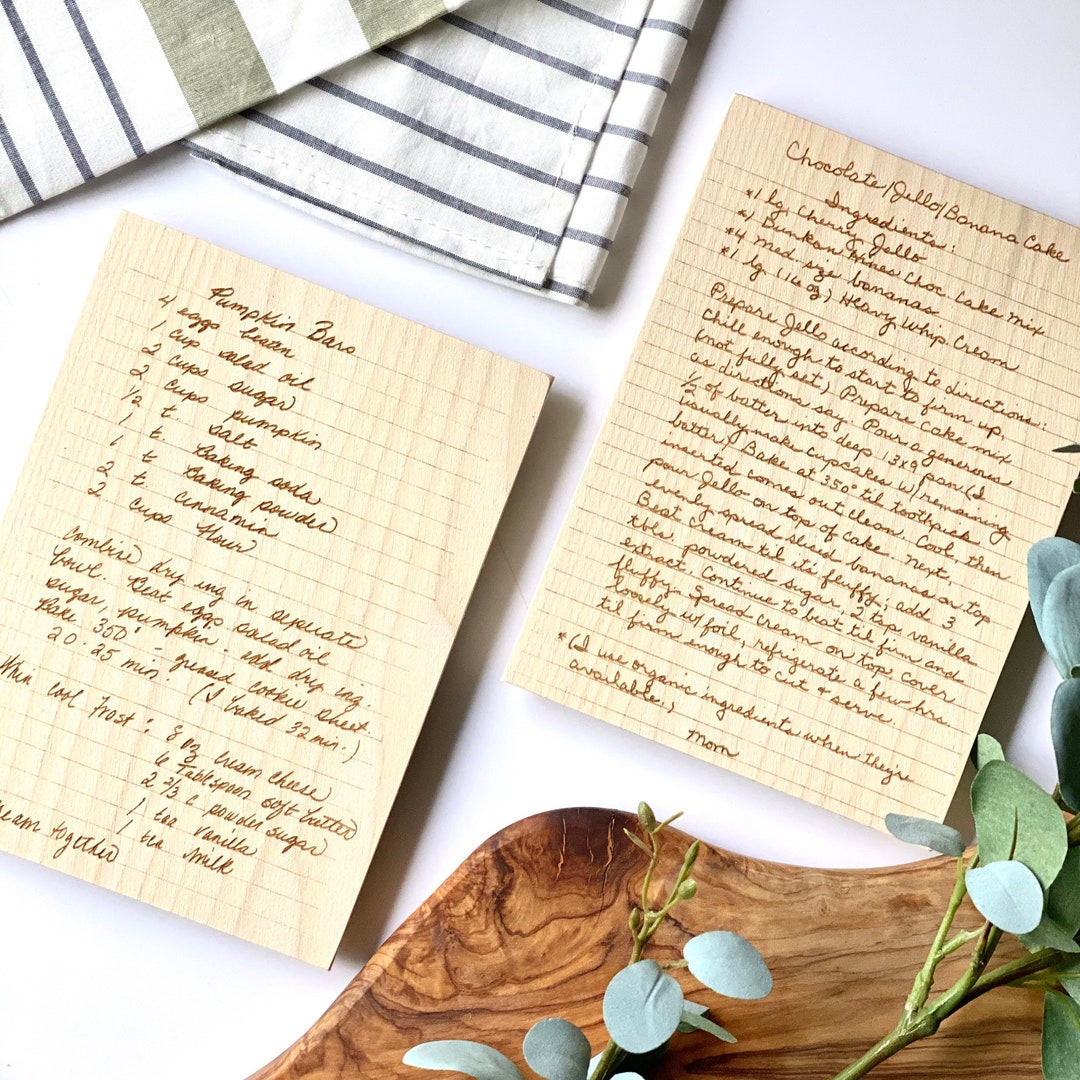 Pumpkin Bars
4 eggs beaten
1 cup salad oil
2 cups sugar
2 cups pumpkin
1/2 t. salt
1 t. Baking soda
1 t. Baking powder
2 t. cinnamin
2 cups flour
Combine dry ing in seperate
bowl. Beat eggs salad oil
sugar, pumpkin - add dry ing.
Bake 350° - greased cookie sheet.
20-25 min - (I baked 32 min.)
When Cool Frost : 8 oz cream cheese
6 Tablespoon soft butter
2 2/3 c powder sugar
1 tea vanilla
1 tea milk
together
Chocolate/Jello/Banana Cake
Ingredients:
*1 lg. Cherry Jello
*1 Dunkan Hines Choc. Cake mix
*4 med. size bananas
*1 lg. (16 oz) Heavy Whip Cream
Prepare Jello according to directions:
Chill enough to start to firm up,
(not fully set) Prepare cake mix
as directions say. Pour a generous
1/2 of batter into deep 13x9 pan (I
usually make cupcakes w/remaining
batter) Bake at 350° til toothpick
inserted comes out clean. Cool, then
pour Jello on top of cake. Next,
evenly spread slised bananas on top.
Beat cream til it's fluffy; add 3
tbls. powdered sugar, 2 tsp. vanilla
extract. Continue to beat til firm and
fluffy. Spread cream on top. Cover
loosly w/foil, refrigerate a few hrs.
til firm enough to cut & serve.
*(I use organic ingredients when they're
available.)
Mom